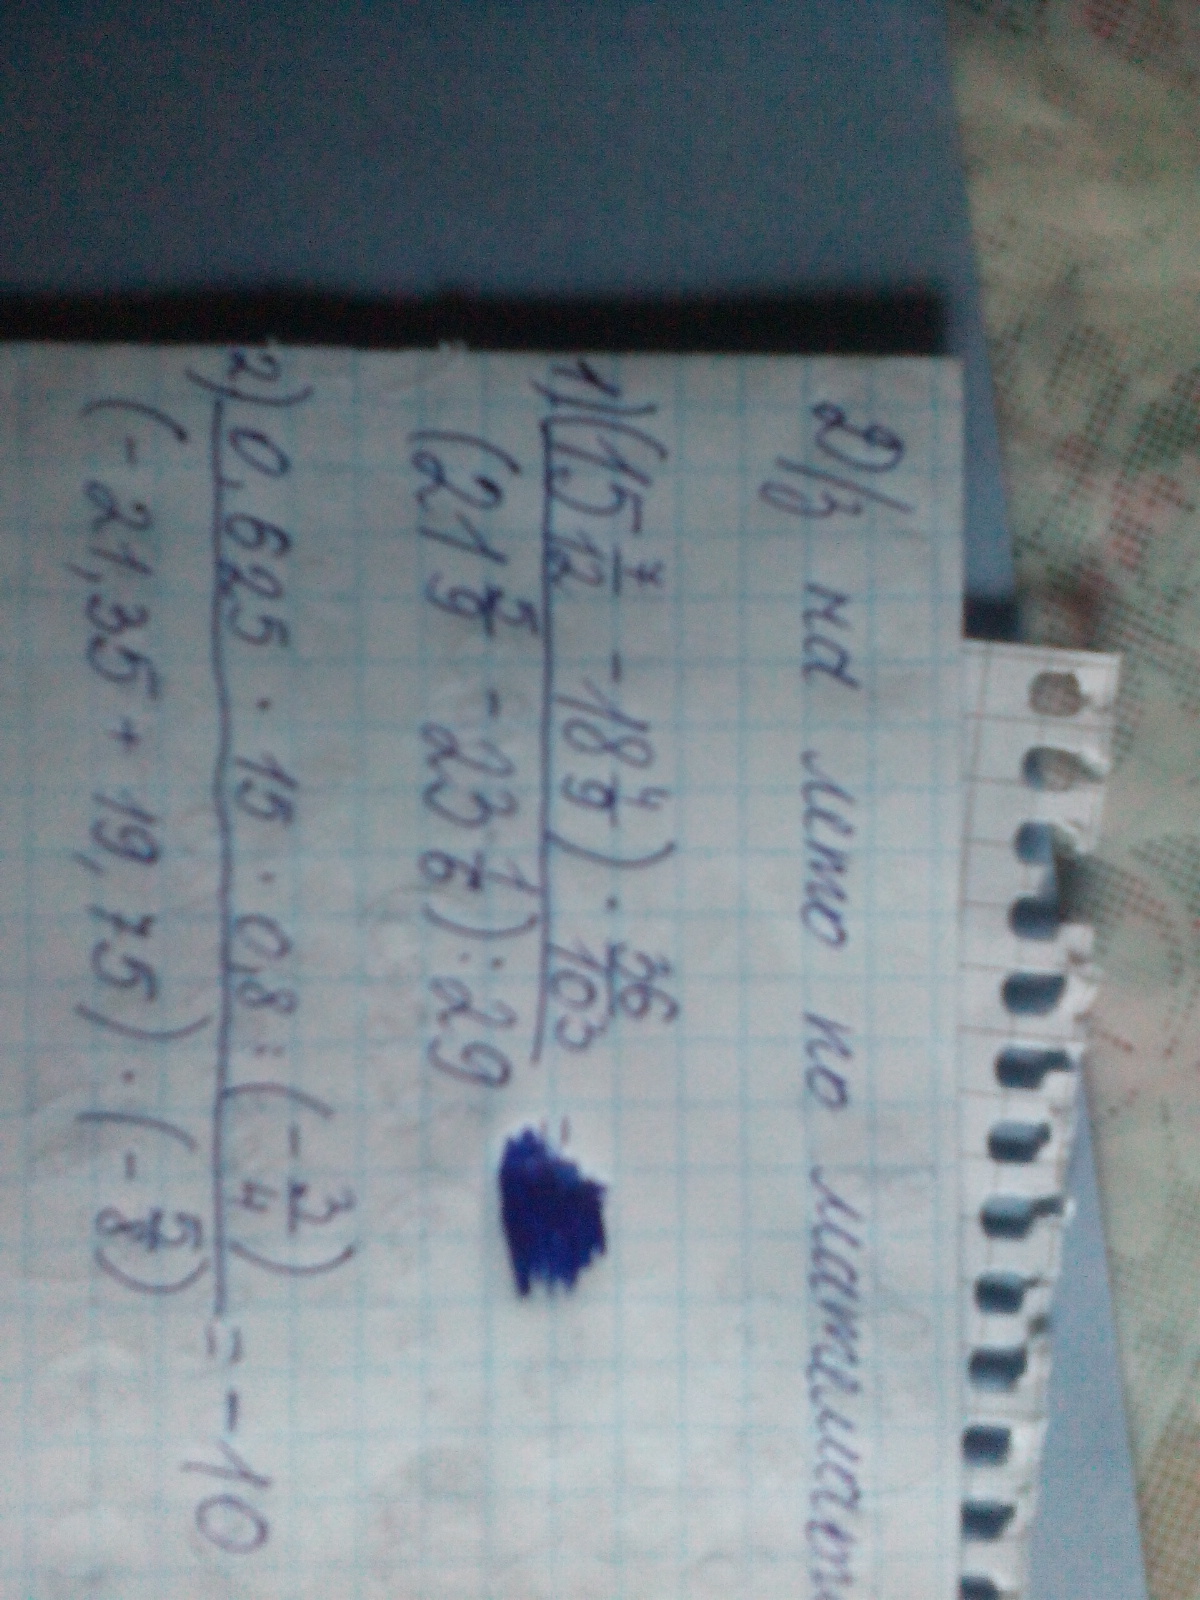 Д/з на лето по матиматі
1) (15 7/12 - 18 4/9) · 36/103 =
(21 5/9 - 23 1/6) : 29
2) 0,625 · 15 · 0,8 : (- 3/4) = -10
(-21,35 + 19,75) · (- 5/8)